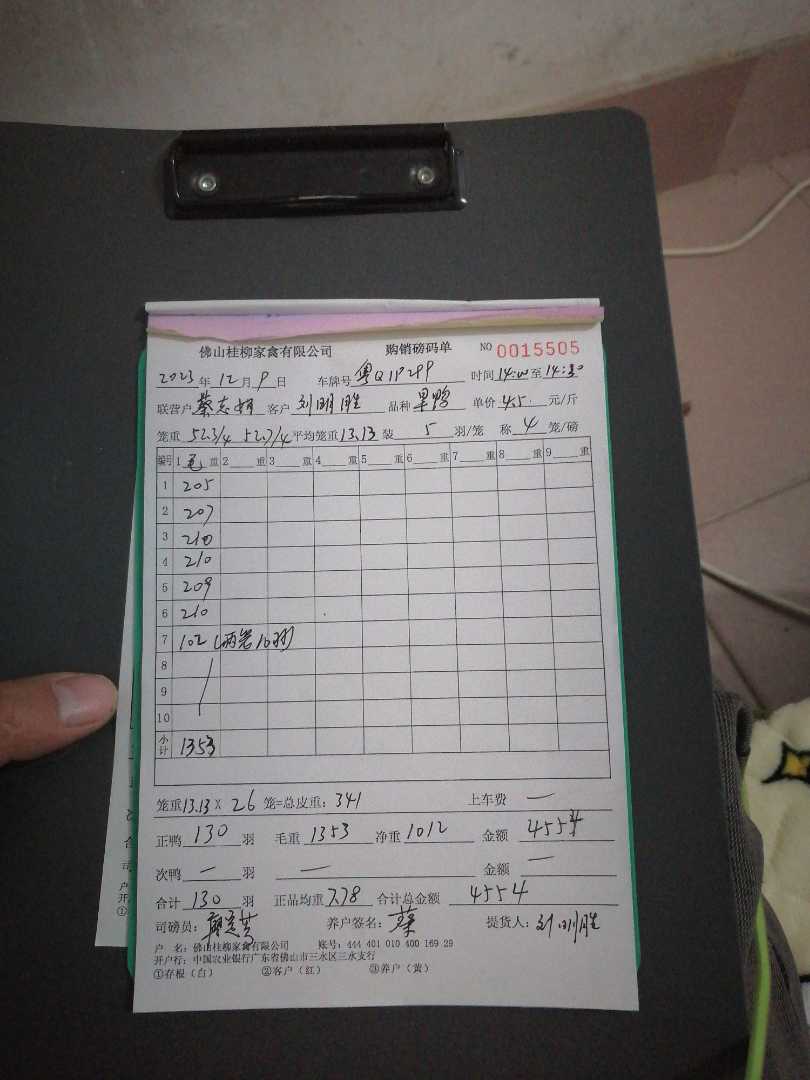 佛山桂柳家禽有限公司 购销磅码单 NO 0015505
2023年12月9日 车牌号 粤Q1P299 时间14:00至14:30
联营户 蔡志 客户 刘明胜 品种 单价 4.5 元/斤
笼重 52.3/4 52.7/4 平均笼重 13.13 装 5 羽/笼 称 4 笼/磅
编号 1 毛 重 2 重 3 重 4 重 5 重 6 重 7 重 8 重 9 重
1 205
2 207
3 210
4 210
5 209
6 210
7 102 (两笼10羽)
8
9
10
小计 1353
笼重 13.13 X 26 笼=总皮重: 341 上车费 一
正鸭 130 羽 毛重 1353 净重 1012 金额 4554
次鸭 一 羽 一 金额 一
合计 130 羽 正品均重 7.78 合计总金额 4554
司磅员: 养户签名: 蔡 提货人: 刘明胜
户 名: 佛山桂柳家禽有限公司 账号: 444 401 010 400 169 29
开户行: 中国农业银行广东省佛山市三水区三水支行
①存根(白) ②客户(红) ③养户(黄)